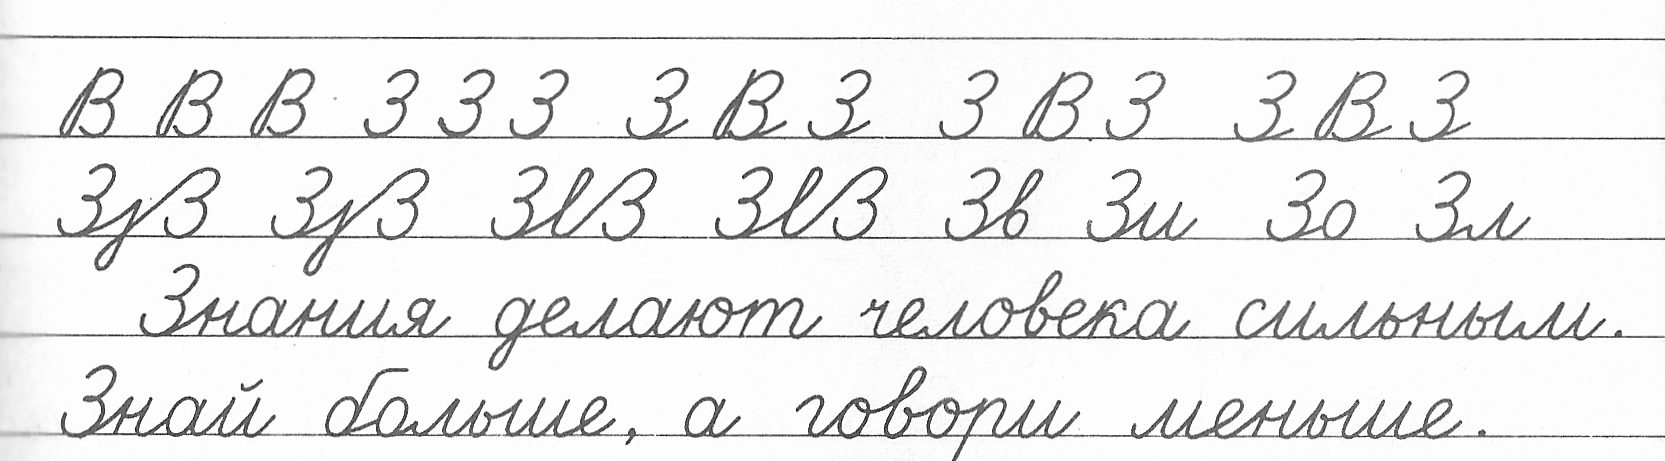 В В В З З З З В З З В З З В З
ЗуЗ ЗуЗ ЗвЗ ЗвЗ Зв Зи Зо Зл
Знания делают человека сильным.
Знай больше, а говори меньше.